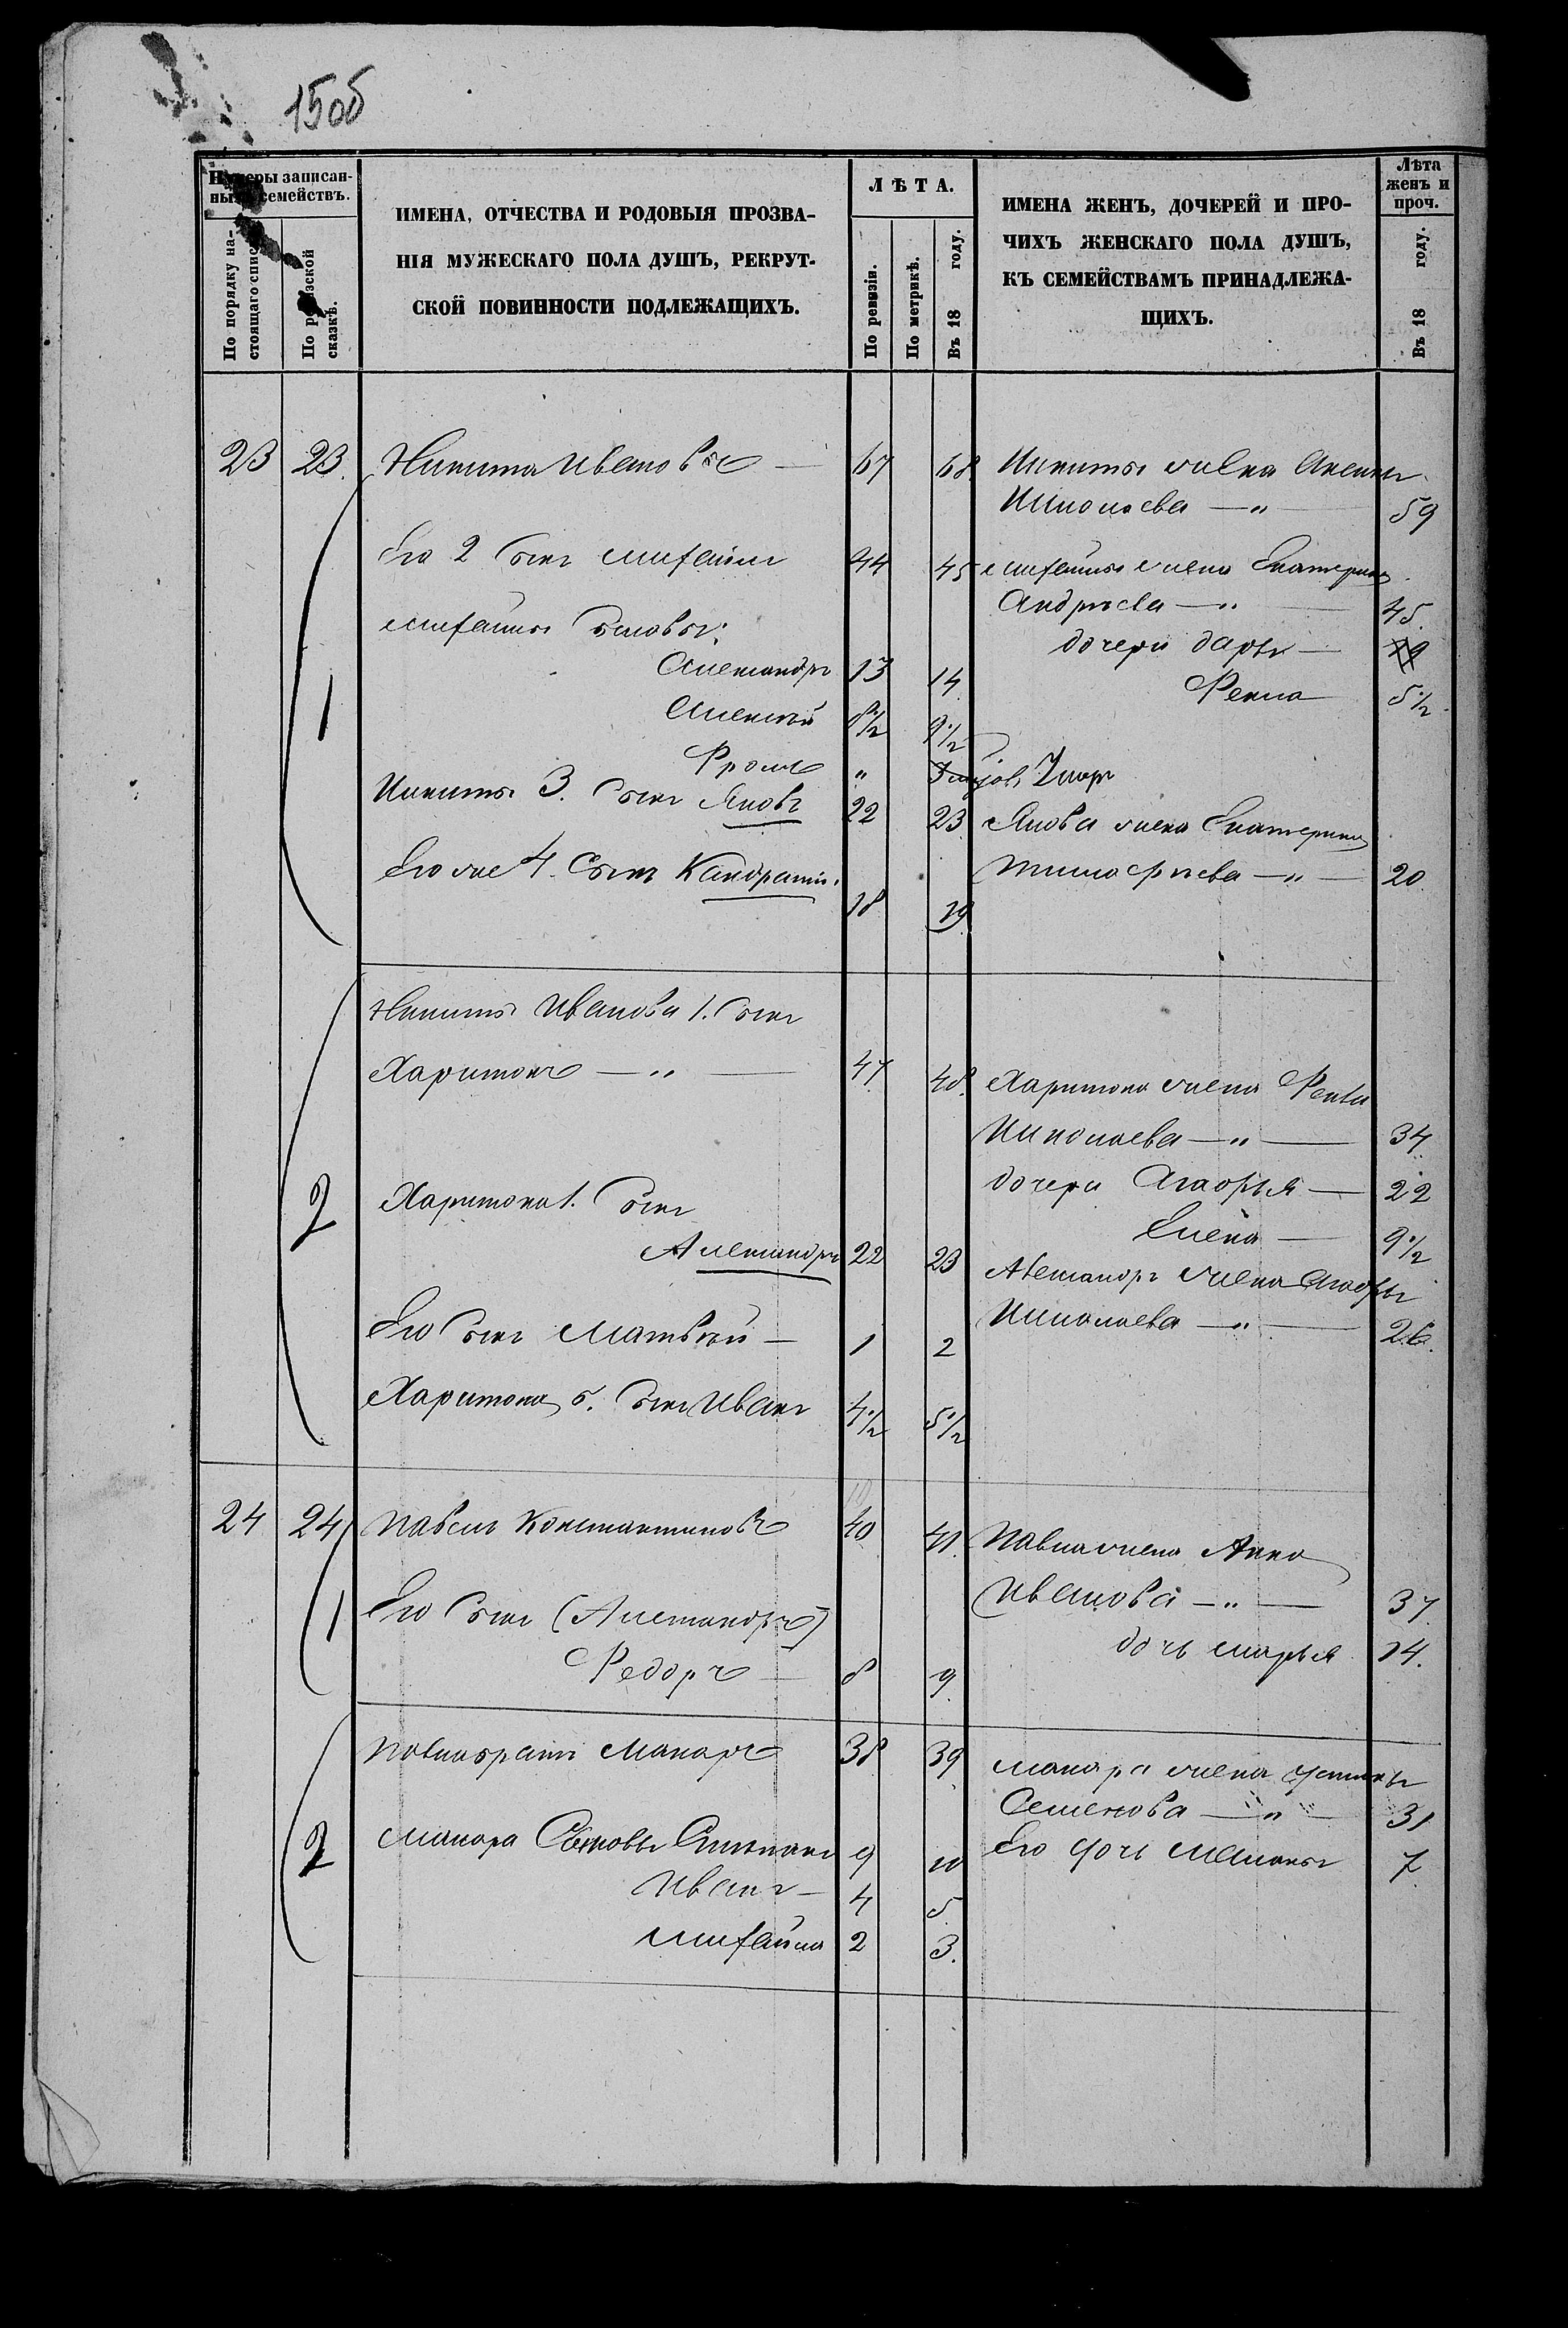 15об
Нумеры записан-
ныхъ семействъ.
По порядку на-
стоящаго списка
По ревизской
сказкѣ.
ИМЕНА, ОТЧЕСТВА И РОДОВЫЯ ПРОЗВА-
НІЯ МУЖЕСКАГО ПОЛА ДУШЪ, РЕКРУТ-
СКОЙ ПОВИННОСТИ ПОДЛЕЖАЩИХЪ.
ЛѢТА.
По ревизіи.
По метрикѣ.
Въ 18 году.
ИМЕНА ЖЕНЪ, ДОЧЕРЕЙ И ПРО-
ЧИХЪ ЖЕНСКАГО ПОЛА ДУШЪ,
КЪ СЕМЕЙСТВАМЪ ПРИНАДЛЕЖА-
ЩИХЪ.
Лѣта
женъ и
проч.
Въ 18 году.
23 23. Никита Ивановъ — 67 68. Никиты жена Аксинья
Николаева — „ — 59
Его 2 сынъ Михаилъ 44 45 Михайлы жена Екатерина
Андрѣева — „ — 45.
Михайлы сыновья:
дочери Дарья — 19
Александръ 13 14
Фекла 5½
1 Алексѣй 8½ 9½
Фролъ „
Никиты 3. сынъ Яковъ 22 23 Якова жена Екатерина
Тимофѣева — „ — 20
Его же 4. сынъ Кандратій. 18 19
Никиты Иванова 1. сынъ
Харитонъ — „ — 47 48. Харитона жена Фекла
Николаева — „ — 34
дочери Агафья — 22
2 Харитона 1. сынъ
Елена — 9½
Александръ 22 23
Александръ жена Агафья
Николаева — „ — 26.
Его сынъ Матвѣй — 1 2
Харитона 5. сынъ Иванъ 4½ 5½
24 24 Павелъ Константиновъ 40 41. Павла жена Анна
Иванова — „ — 37
1 Его сынъ (Александръ)
дочь Марья 14.
Федоръ — 8 9.
Павла братъ Макаръ 38 39 Макара жена Устинья
Семенова — „ — 31
2 Макара сыновья Степанъ 9 10
Его дочь Маланья 7
Иванъ — 4 5
Михайла 2 3.